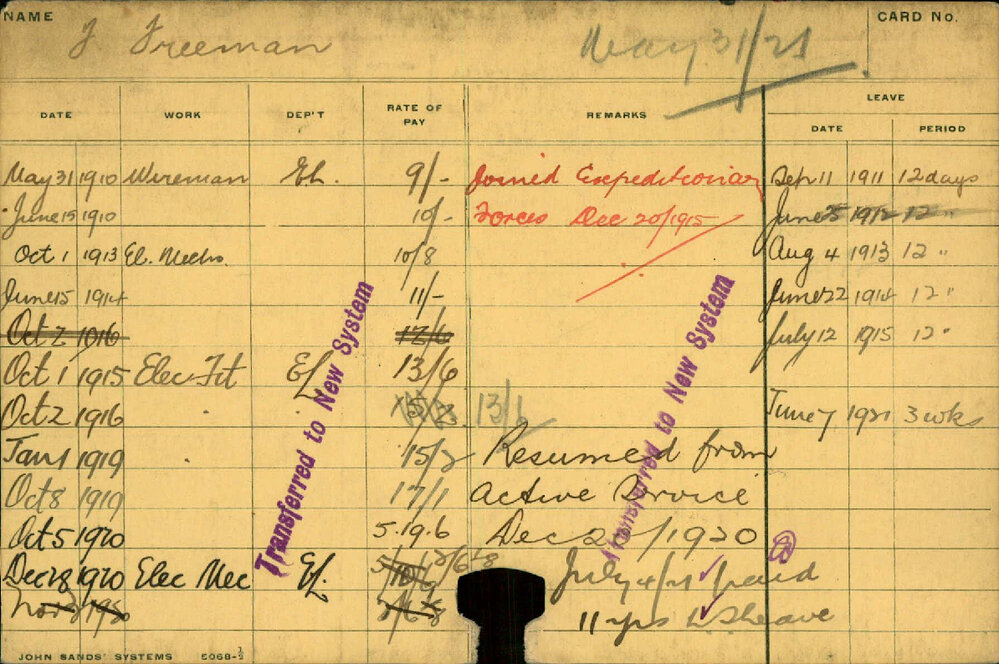 NAME J Freeman May 31/21 CARD No.
DATE WORK DEP'T RATE OF PAY REMARKS LEAVE
DATE PERIOD
May 31 1910 Wireman El. 9/- Joined Expeditionary Sep 11 1911 12 days
June 15 1910 10/- Forces Dec 20/1915 June 25 1912 12 "
Oct 1 1913 El. Mechs. 10/8 Aug 4 1913 12 "
June 15 1914 11/- June 22 1914 12 "
Oct 2 1916 12/6 July 12 1915 12 "
Oct 1 1915 Elec Fit El 13/6
Oct 2 1916 13/6 June 7 1921 3 wks
Jan 1 1919 15/2 Resumed from
Oct 8 1919 17/1 active Service
Oct 5 1920 5.19.6 Dec 1920
Dec 28 1920 Elec Mec El. July 4/21 paid
11 yrs L. S leave
Transferred to New System
Transferred to New System
JOHN SANDS' SYSTEMS 6068-½